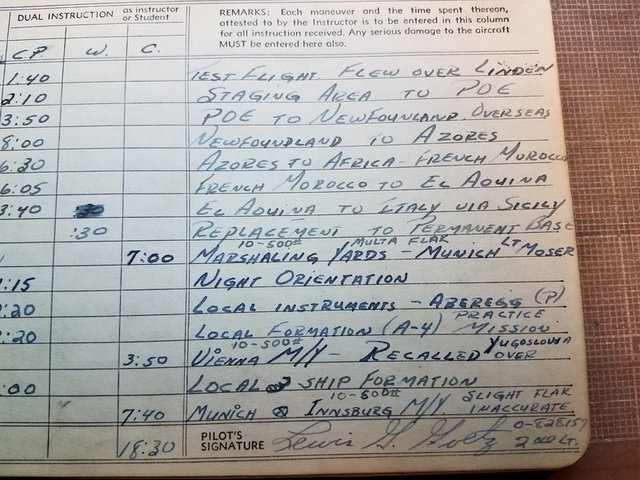 DUAL INSTRUCTION
as instructor
or Student
REMARKS: Each maneuver and the time spent thereon,
attested to by the Instructor is to be entered in this column
for all instruction received. Any serious damage to the aircraft
MUST be entered here also.
CP. W. C.
1:40 TEST FLIGHT FLEW OVER LINDEN
2:10 STAGING AREA TO POE
3:50 POE TO NEWFOUNLAND OVERSEAS
8:00 NEWFOUNDLAND TO AZORES
6:30 AZORES TO AFRICA - FRENCH MOROCCO
6:05 FRENCH MOROCCO TO EL AOUINA
3:40 EL AOUINA TO ITALY VIA SICILY
:30 REPLACEMENT TO PERMANENT BASE
10-500# MULTA FLAK LT
7:00 MARSHALING YARDS - MUNICH MOSER
:15 NIGHT ORIENTATION
:20 LOCAL INSTRUMENTS - ABEREGG (P)
PRACTICE
:20 LOCAL FORMATION (A-4) MISSION
10-500# YUGOSLOVIA
3:50 VIENNA M/Y - RECALLED OVER
:00 LOCAL 3 SHIP FORMATION
10-500# SLIGHT FLAK
7:40 MUNICH INNSBURG M/Y INACCURATE
18:30 PILOT'S
SIGNATURE Lewis G. Goetz
2nd Lt.